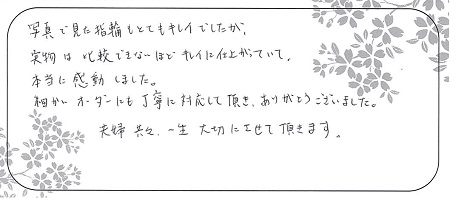 写真で見た指輪もとてもキレイでしたが、
実物は比較できないほどキレイに仕上がっていて、
本当に感動しました。
細かいオーダーにも丁寧に対応して頂き、ありがとうございました。
夫婦共々、一生大切にさせて頂きます。